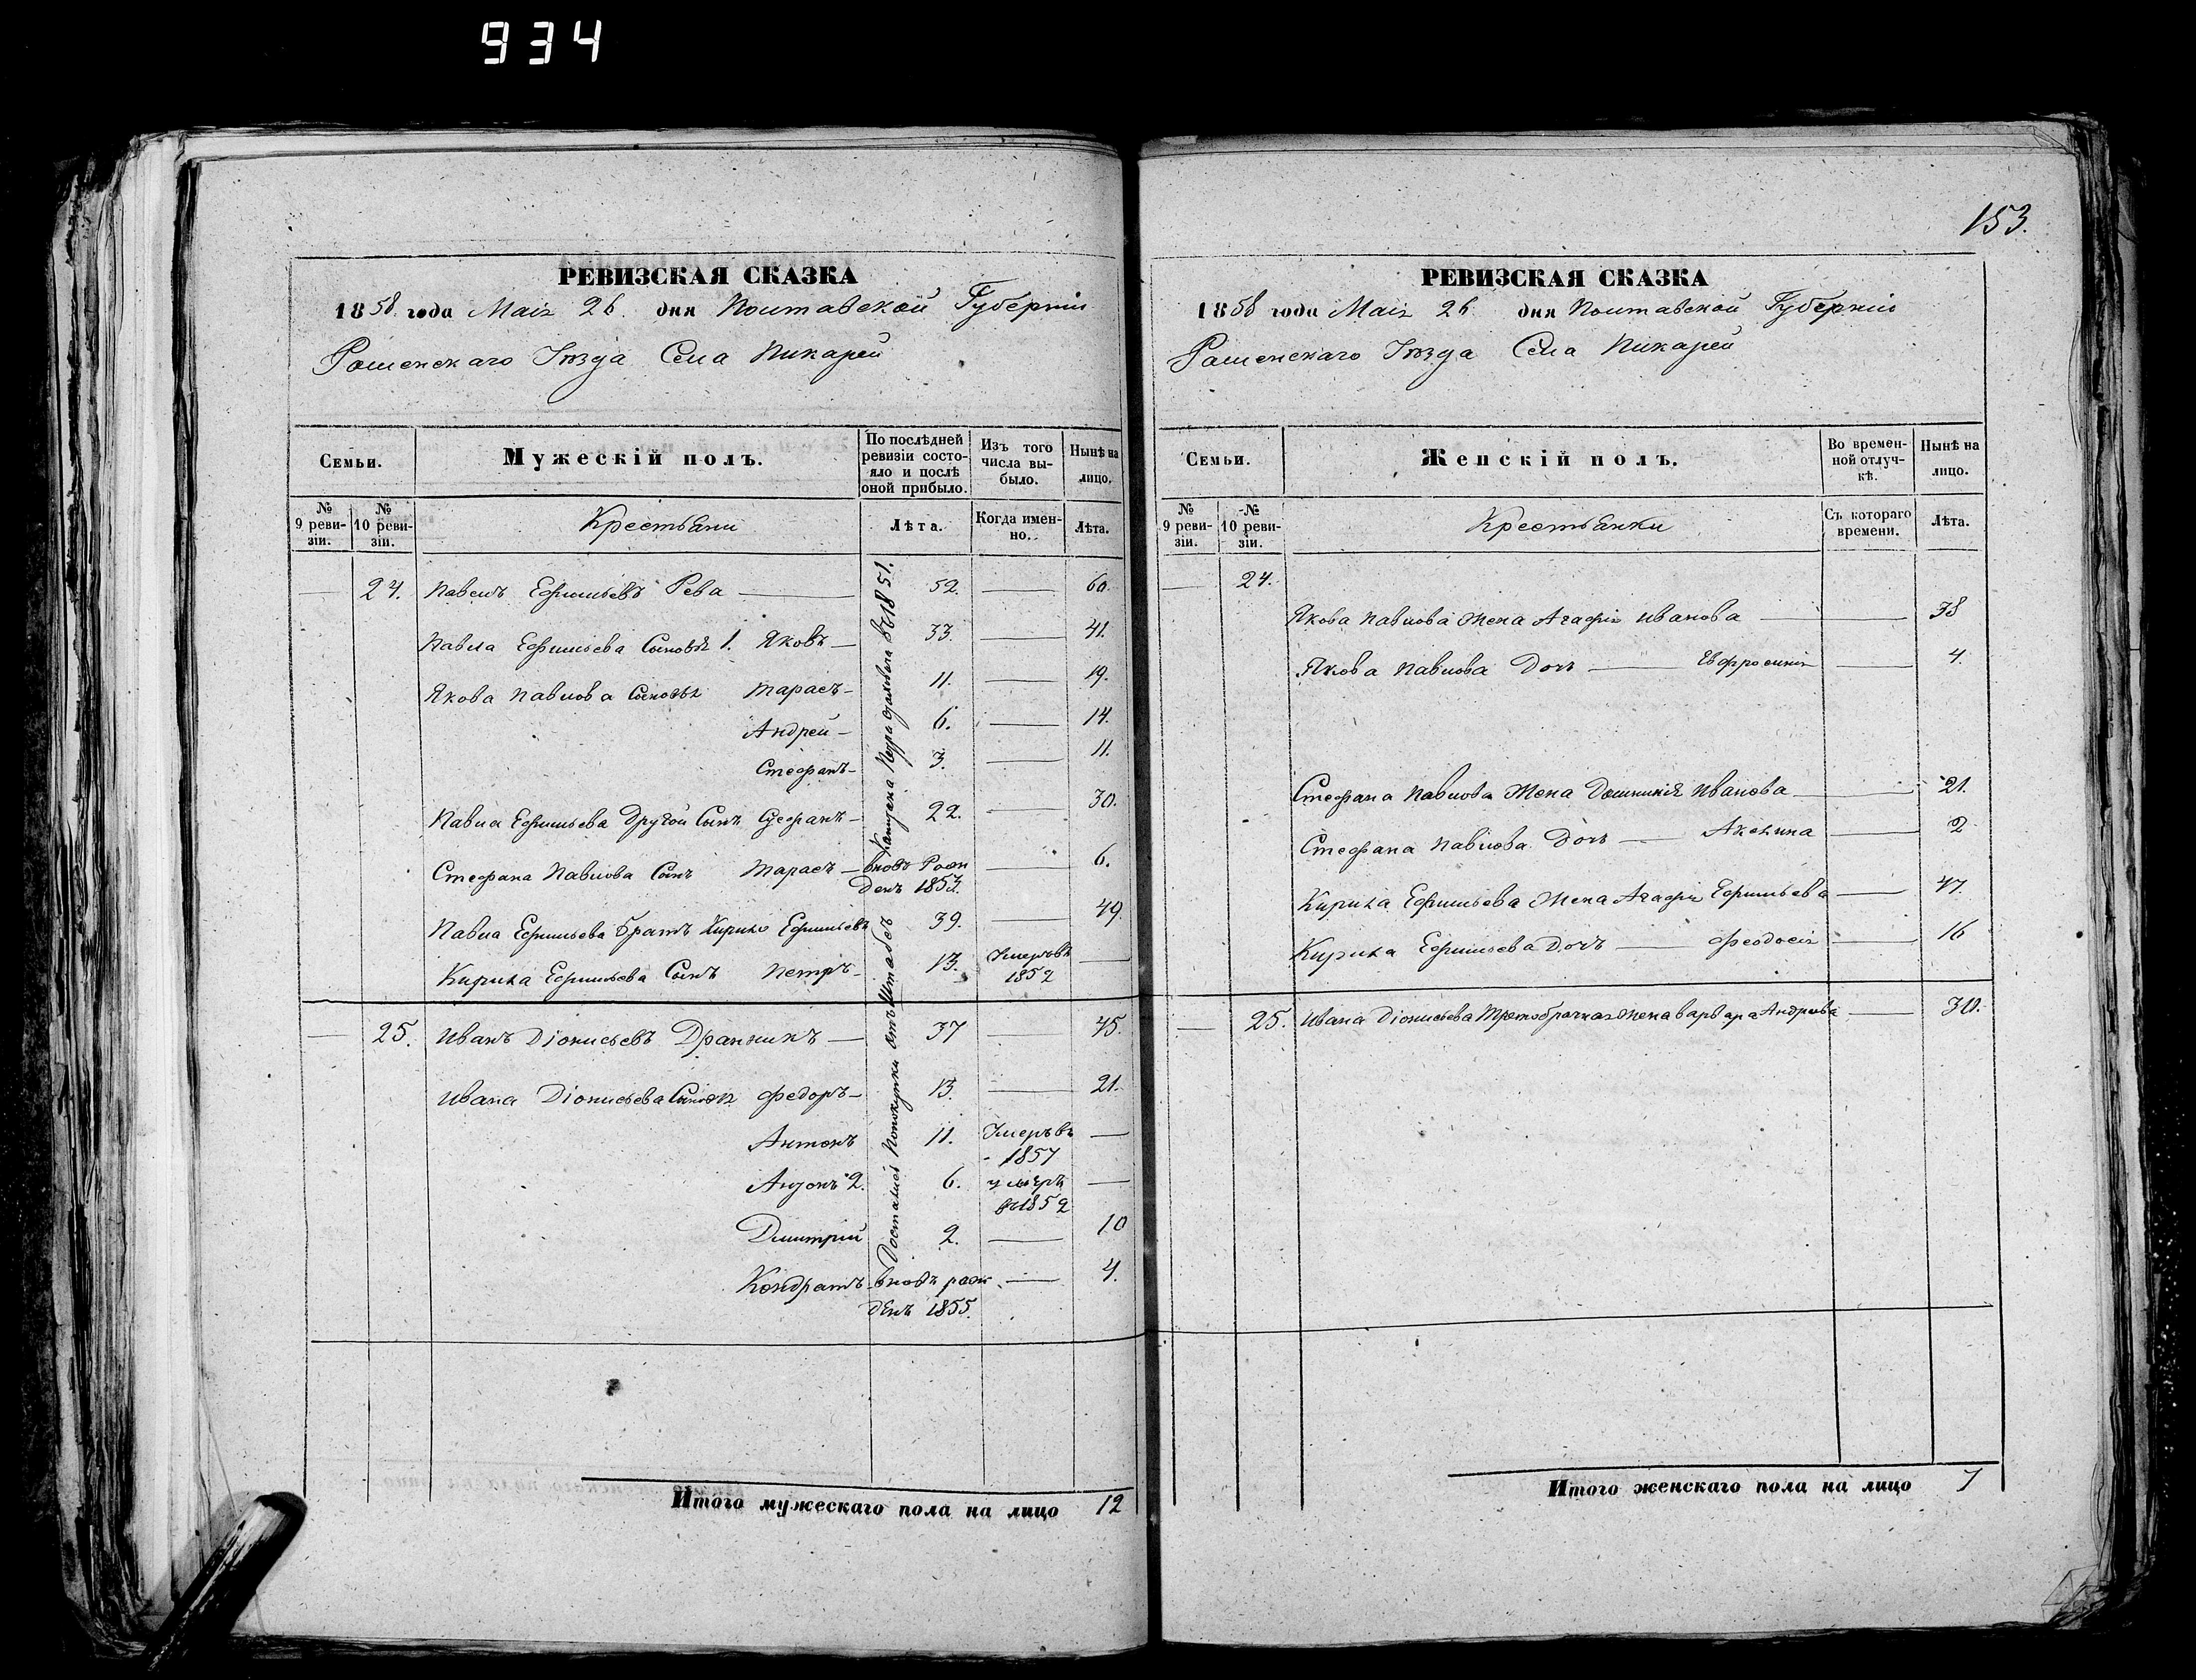 934
РЕВИЗСКАЯ СКАЗКА
1858 года Маія 26 дня Полтавской Губерніи
Роменскаго Уѣзда Села Пикарей
Семьи.
Мужескій полъ.
По послѣдней ревизіи состояло и послѣ оной прибыло.
Изъ того числа выбыло.
Нынѣ на лицо.
№ 9 ревизіи.
№ 10 ревизіи.
Крестьяни
Лѣта.
Когда именно.
Лѣта.
— 24. Павелъ Ефимьевъ Рева — 52. — 60.
Павла Ефимьева Сыновья 1. Яковъ — 33. — 41.
Якова Павлова Сыновья Тарасъ — 11. — 19.
Андрей — 6. — 14.
Стефанъ — 3. — 11.
Павла Ефимьева Другой Сынъ Стефанъ — 22. — 30.
Стефана Павлова Сынъ Тарасъ — вновь Рожденъ 1853. — 6.
Павла Ефимьева братъ Кирило Ефимьевъ 39. — 49.
Кирила Ефимьева Сынъ Петръ — 13. Умеръ въ 1852 —
— 25. Иванъ Діонисьевъ Дранникъ — 37 — 45.
Ивана Діонисьева Сыновья Федоръ — 13. — 21.
Антонъ 11. Умеръ въ 1857 —
Антонъ 2. 6. умеръ въ 1852 —
Дмитрій 2. — 10
Кондратъ вновь рожденъ 1855. — 4.
Достались Покупки отъ Штабсъ Капитана Петра въ 1851.
Итого мужескаго пола на лицо 12
153.
РЕВИЗСКАЯ СКАЗКА
1858 года Маія 26 дня Полтавской Губерніи
Роменскаго Уѣзда Села Пикарей
Семьи.
Женскій полъ.
Во временной отлучкѣ.
Нынѣ на лицо.
№ 9 ревизіи.
№ 10 ревизіи.
Крестьянки
Съ котораго времени.
Лѣта.
— 24.
Якова Павлова Жена Агафія Иванова — 38
Якова Павлова Дочь — Евфросинія — 4.
Стефана Павлова Жена Домникія Иванова — 21.
Стефана Павлова Дочь — Акелина — 2
Кирила Ефимьева Жена Агафія Ефимьева — 47.
Кирила Ефимьева Дочь — Феодосія — 16
— 25. Ивана Діонисьева Третобрачная Жена Варвара Андреева — 30.
Итого женскаго пола на лицо 7